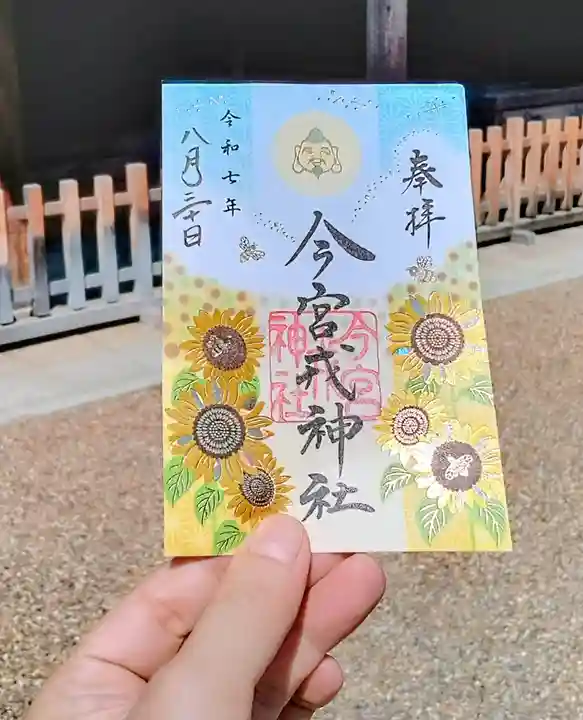 奉拝
今宮戎神社
令和七年
八月三十日
今宮
戎
神社